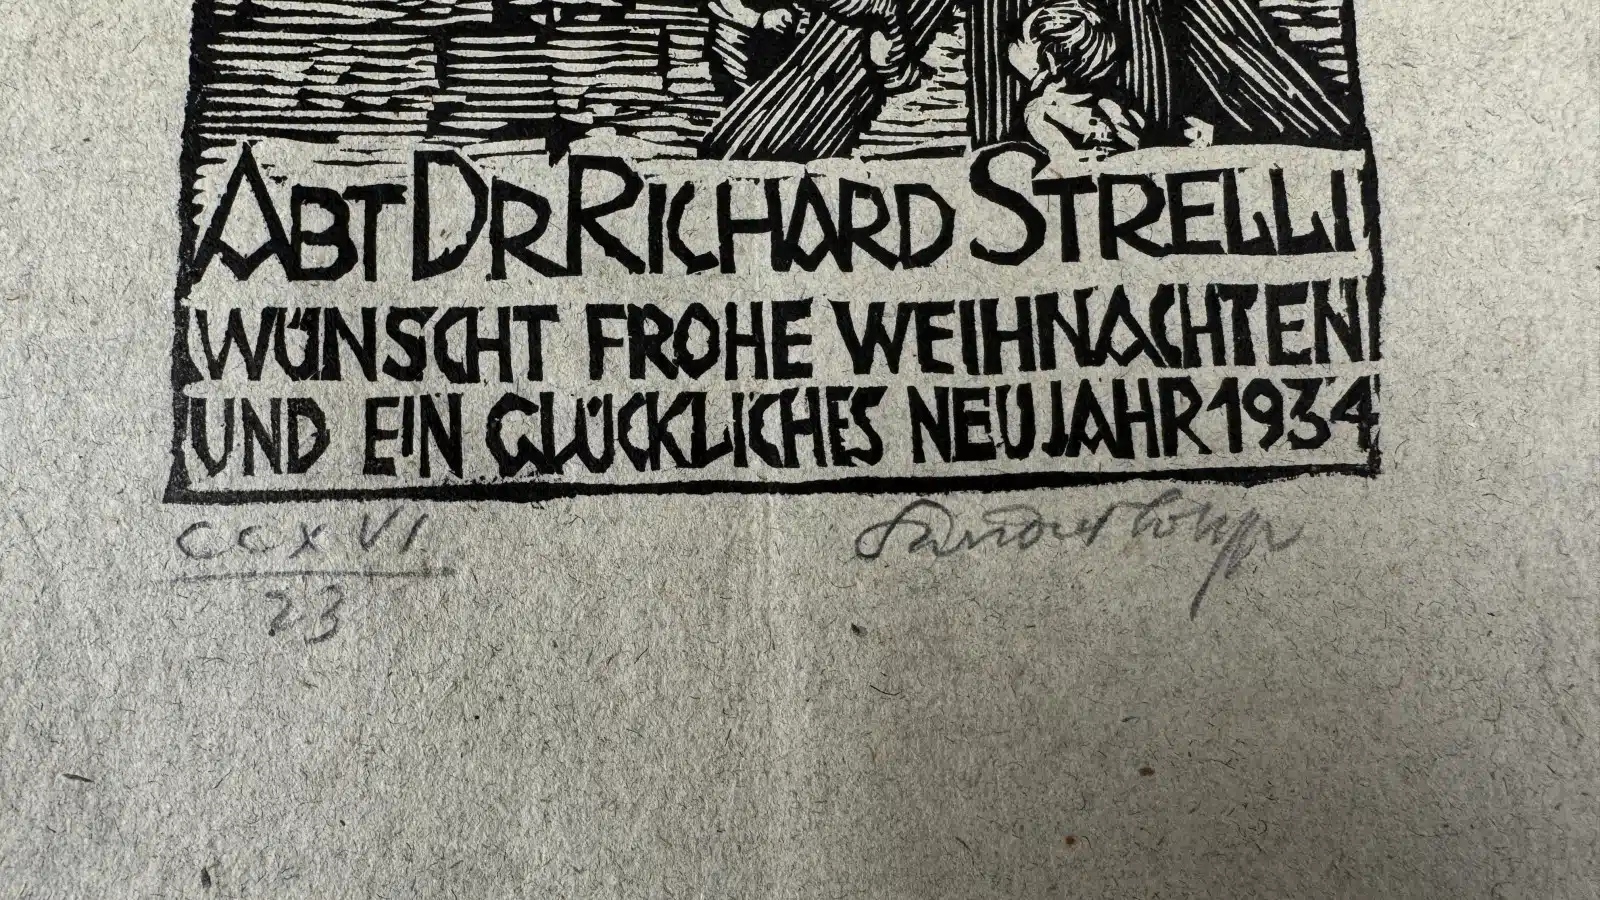 ABT DR RICHARD STRELLI
WÜNSCHT FROHE WEIHNACHTEN
UND EIN GLÜCKLICHES NEUJAHR 1934
CCXVI
23